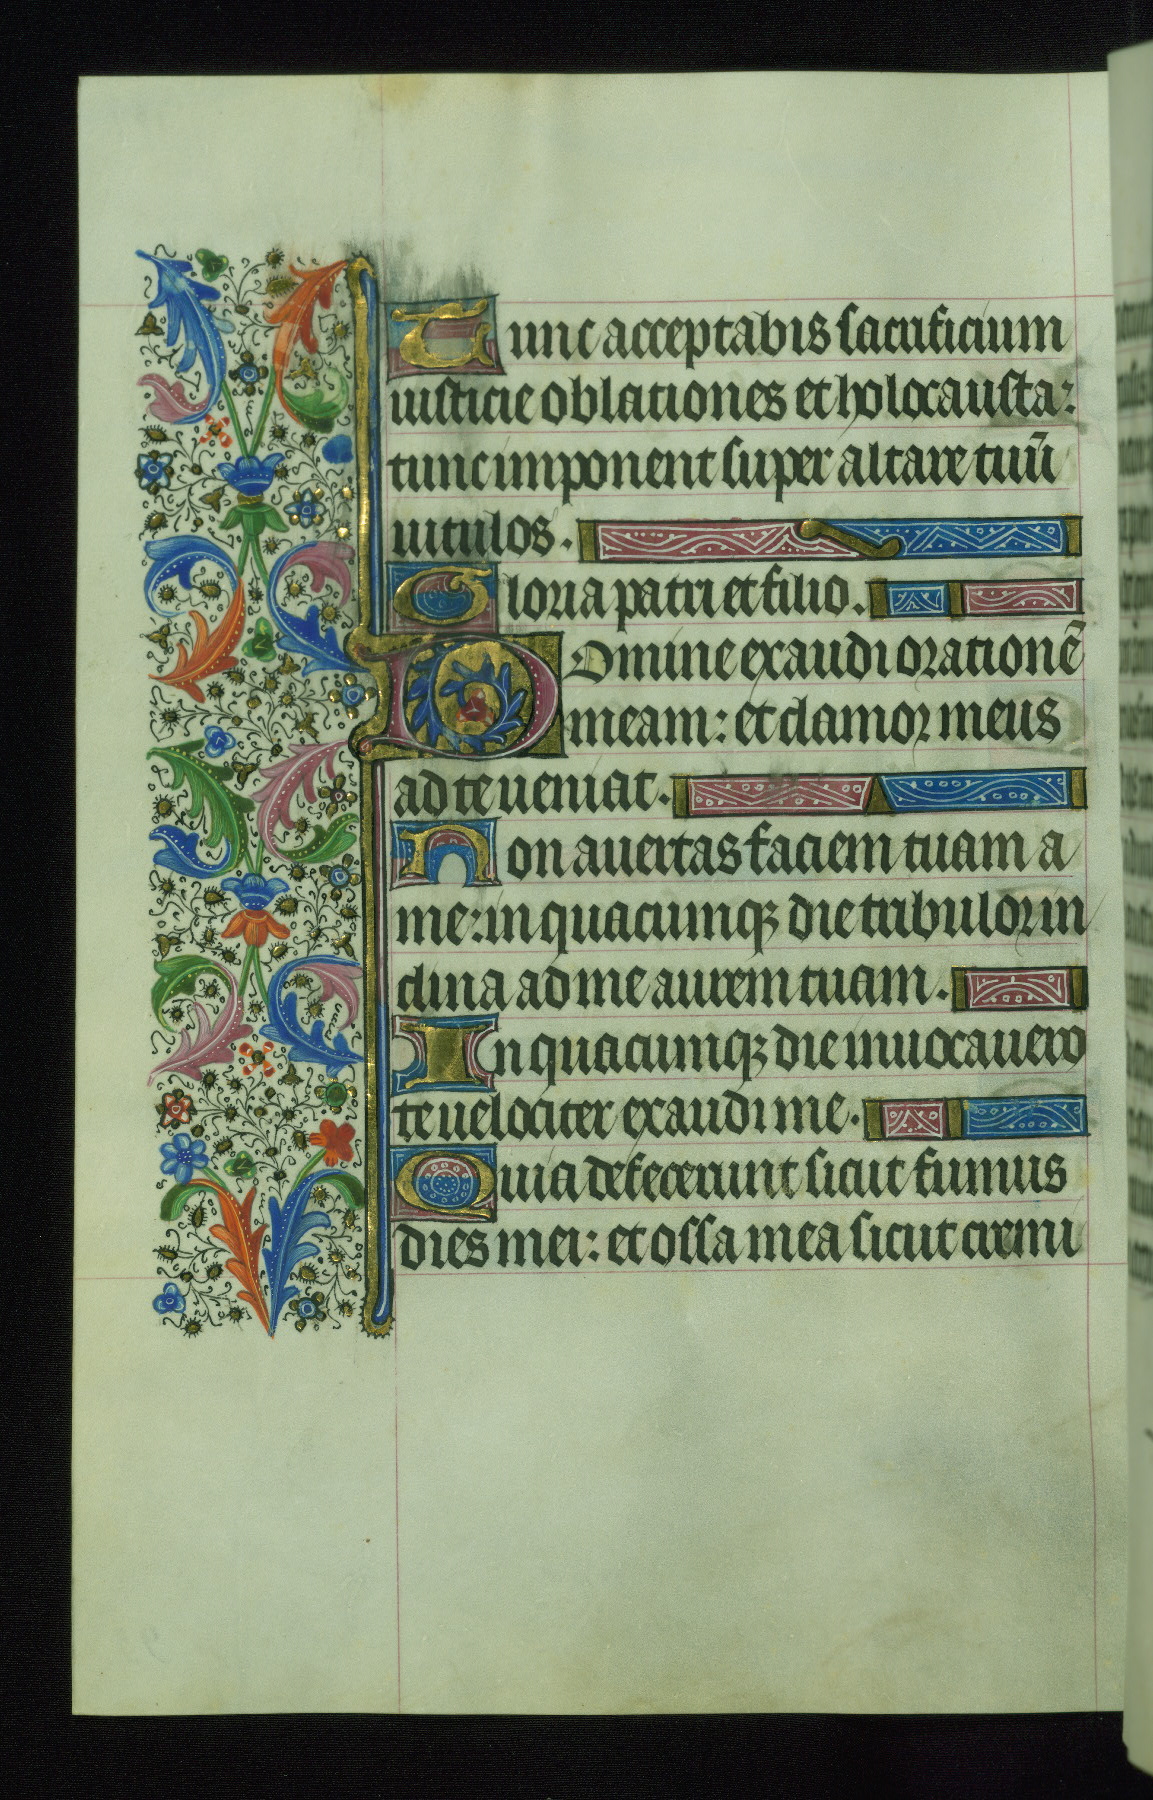 Tunc acceptabis sacrificium
iusticie oblationes et holocausta:
tunc imponent super altare tuū
uitulos.
Gloria patri et filio.
Domine exaudi orationē
meam: et clamor meus
ad te ueniat.
Non auertas faciem tuam a
me: in quacumqꝫ die tribulor in
clina ad me aurem tuam.
In quacumqꝫ die inuocauero
te uelociter exaudi me.
Quia defecerunt sicut fumus
dies mei: et ossa mea sicut cremi